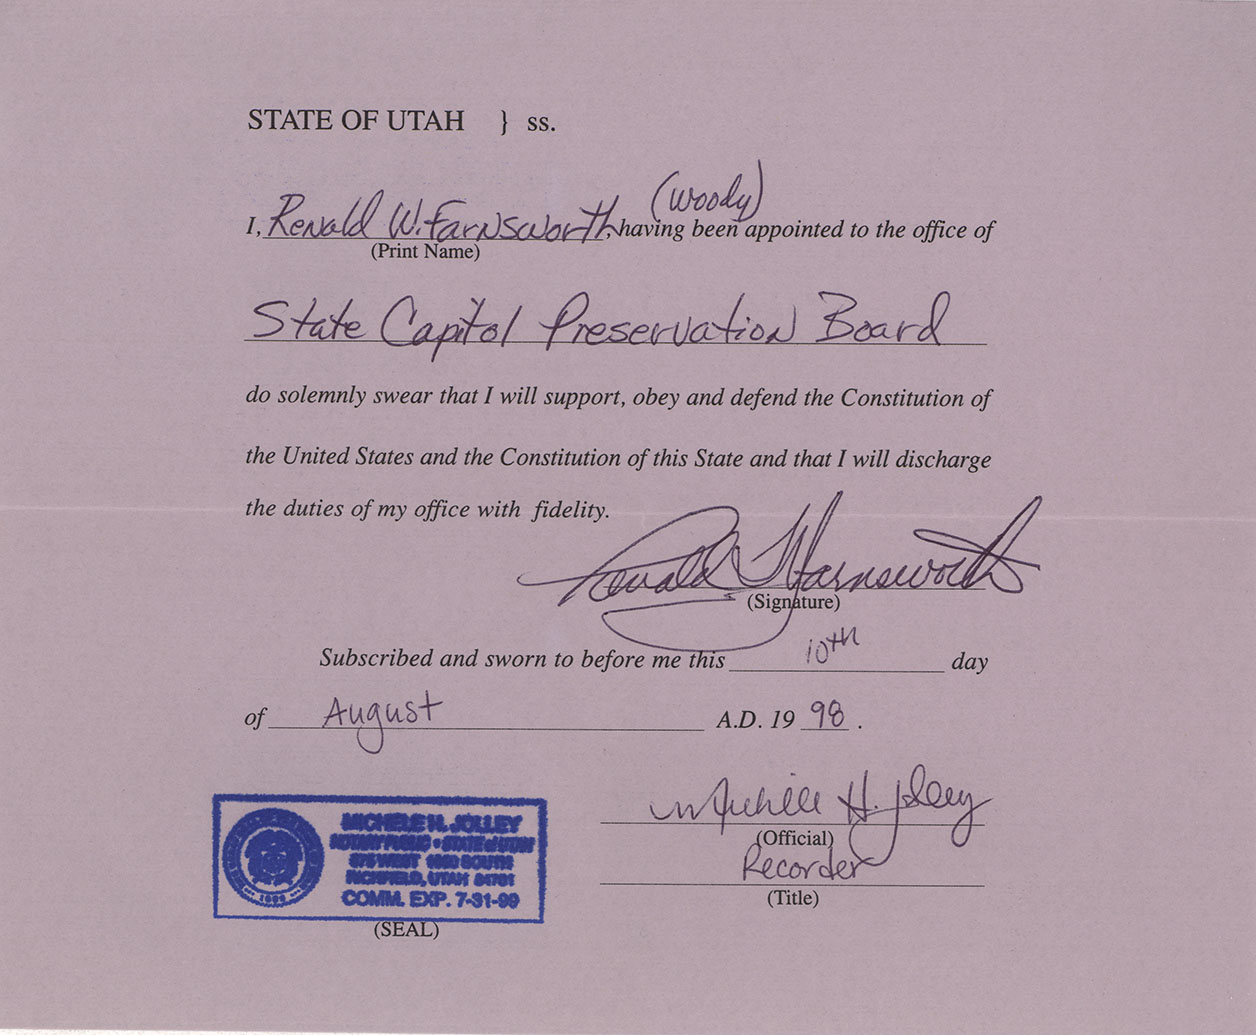 STATE OF UTAH } ss.
(Woody)
I, Ronald W. Farnsworth, having been appointed to the office of
(Print Name)
State Capitol Preservation Board
do solemnly swear that I will support, obey and defend the Constitution of
the United States and the Constitution of this State and that I will discharge
the duties of my office with fidelity.
Ronald W Farnsworth
(Signature)
Subscribed and sworn to before me this 10th day
of August A.D. 19 98 .
Michele H. Jolley
(Official)
Recorder
(Title)
MICHELE H. JOLLEY
NOTARY PUBLIC • STATE of UTAH
WEST SOUTH
RICHFIELD, UTAH 84701
COMM. EXP. 7-31-99
(SEAL)